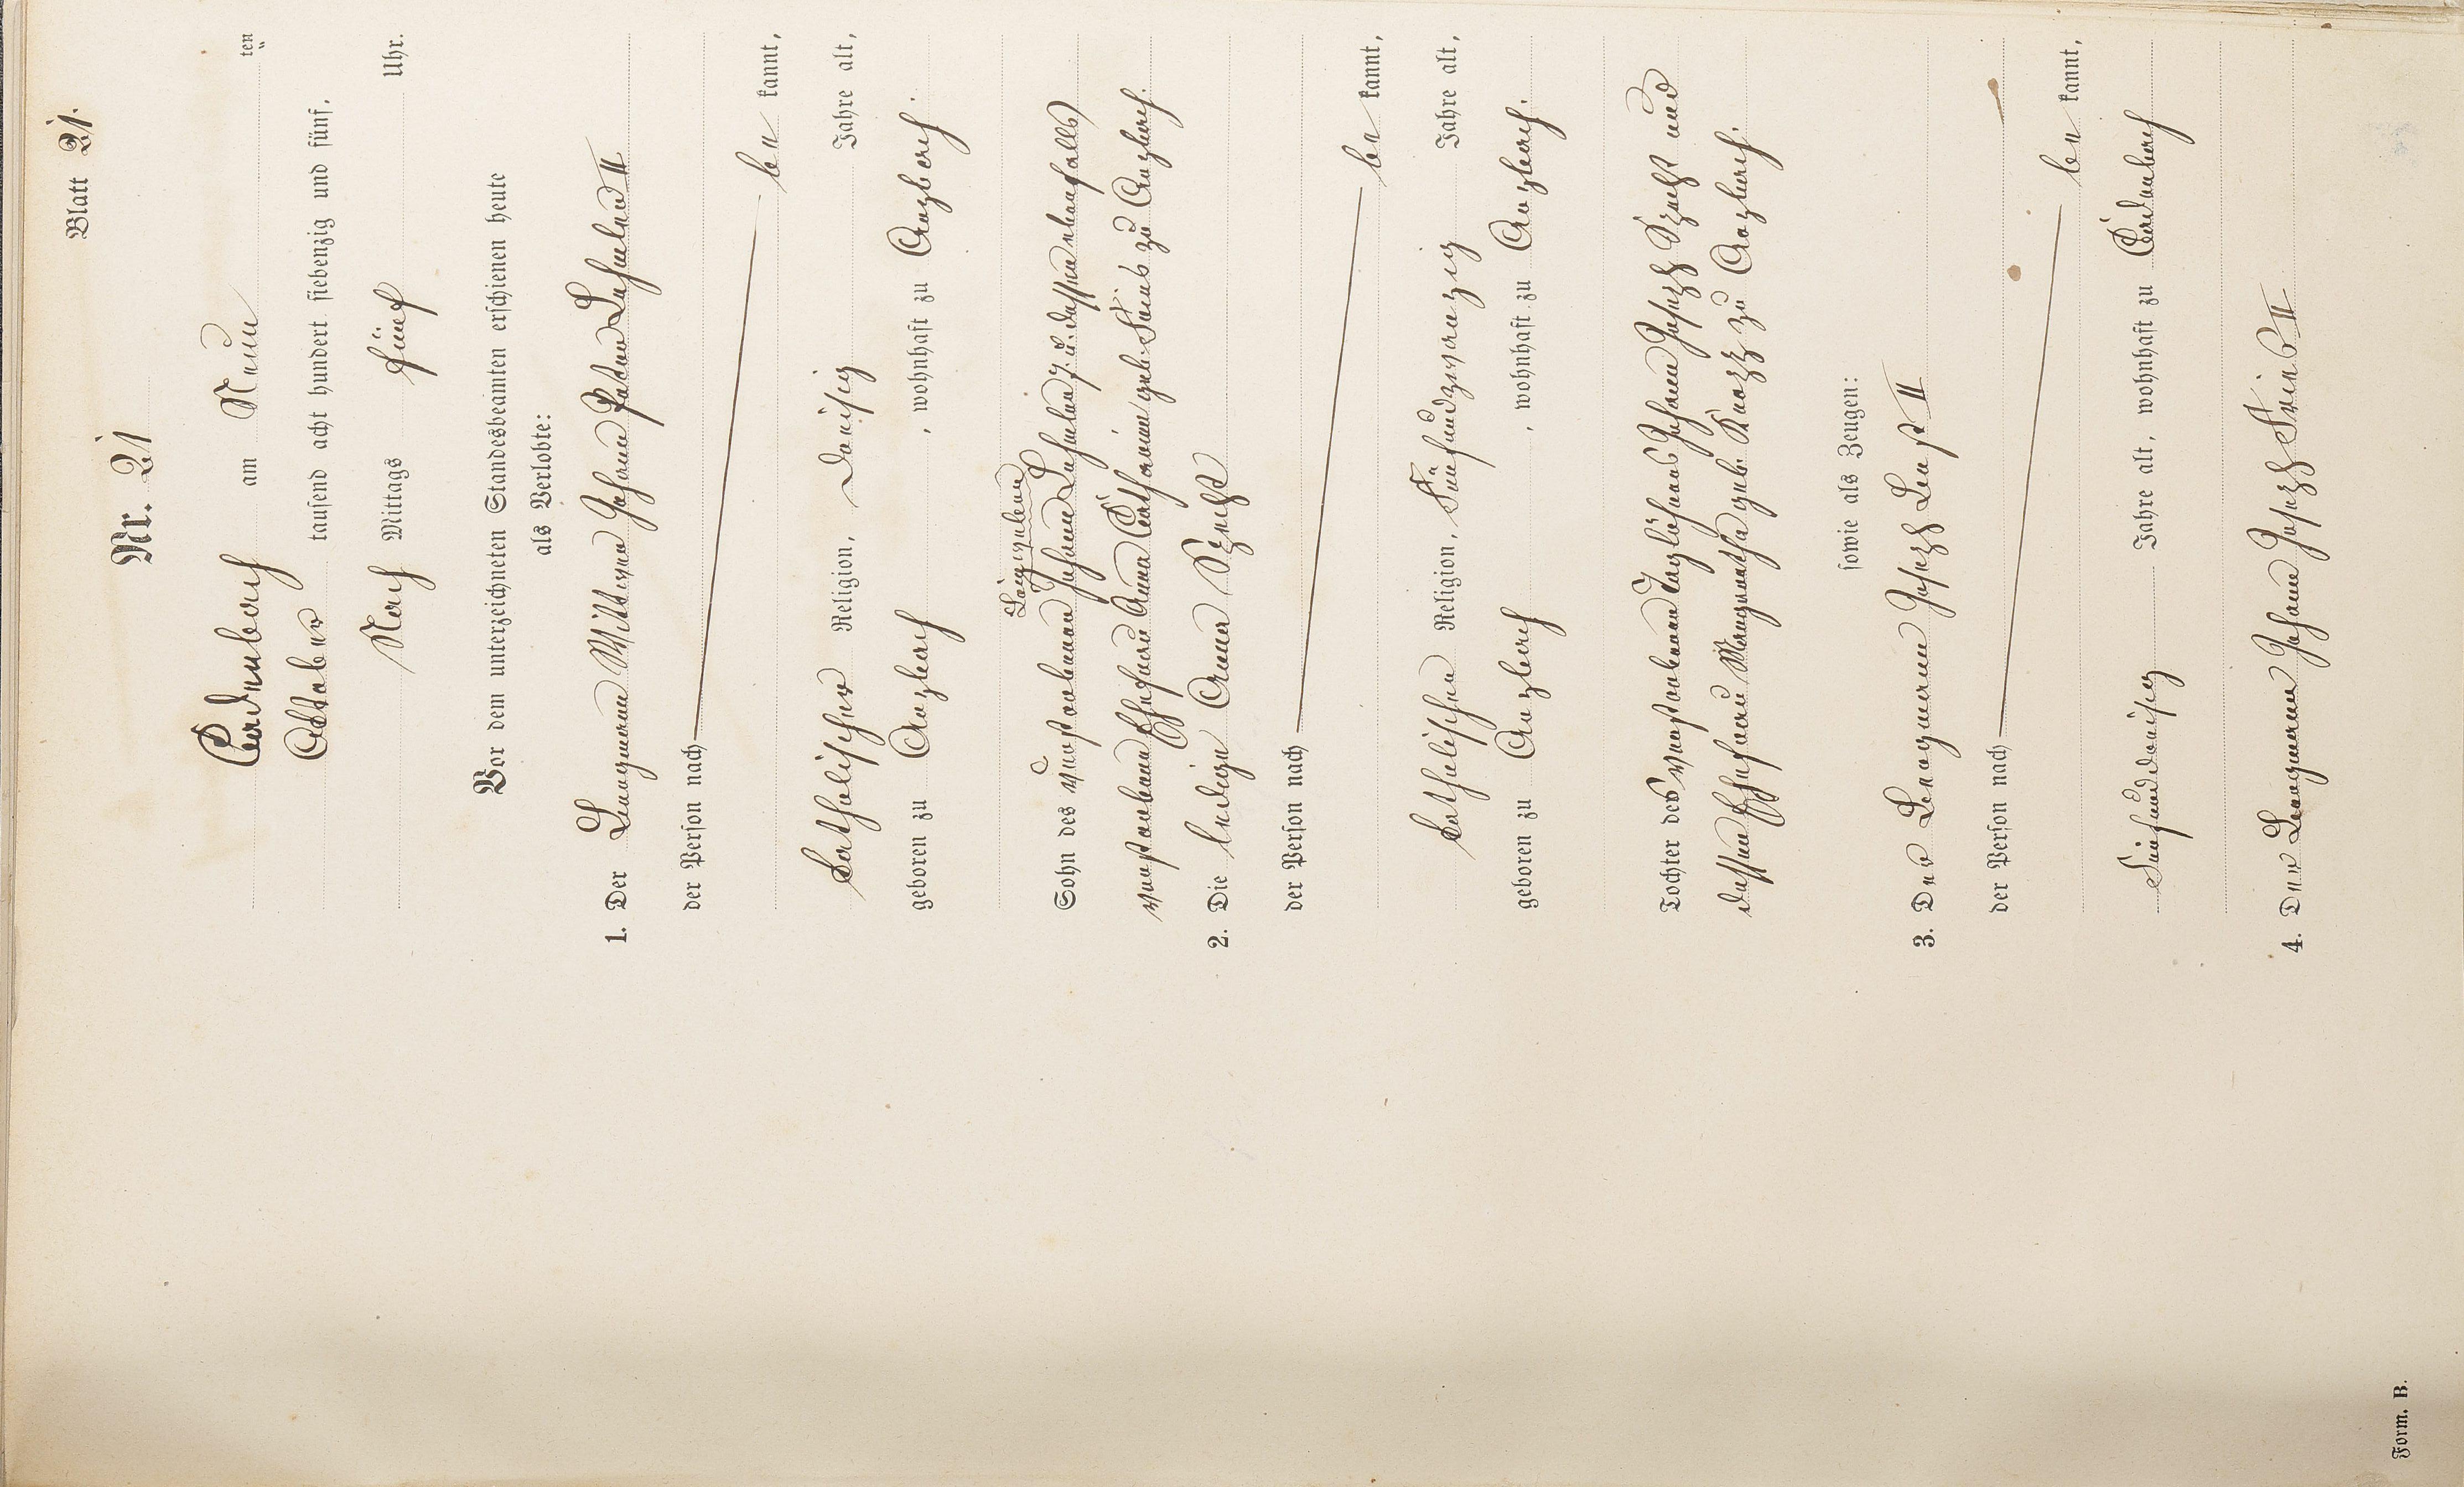 Blatt 21.
Nr. 21
Cadenbach am Neun ten
Oktober tausend acht hundert siebenzig und fünf,
Nach Mittags fünf Uhr.
Vor dem unterzeichneten Standesbeamten erschienen heute
als Verlobte:
1. Der Bergmann Wittwer Johann Peter
der Person nach
be kannt,
katholischer Religion, dreißig Jahre alt,
geboren zu Arzbach, wohnhaft zu Arzbach.
Sohn des verstorbenen Johann u. dessen ebenfalls
verstorbenen Ehefrau Anna Catharina geb. zu Arzbach.
2. Die ledige Anna Specht
der Person nach
be kannt,
katholischen Religion, Fünfundzwanzig Jahre alt,
geboren zu Arzbach, wohnhaft zu Arzbach.
Tochter des verstorbenen Taglöhners Johann Joseph Specht und
dessen Ehefrau Margaretha geb. Knopp zu Arzbach.
sowie als Zeugen:
3. Der Bergmann Joseph II
der Person nach
be kannt,
Fünfunddreißig Jahre alt, wohnhaft zu Cadenbach
4. Der Bergmann Johann Joseph II
Form. B.